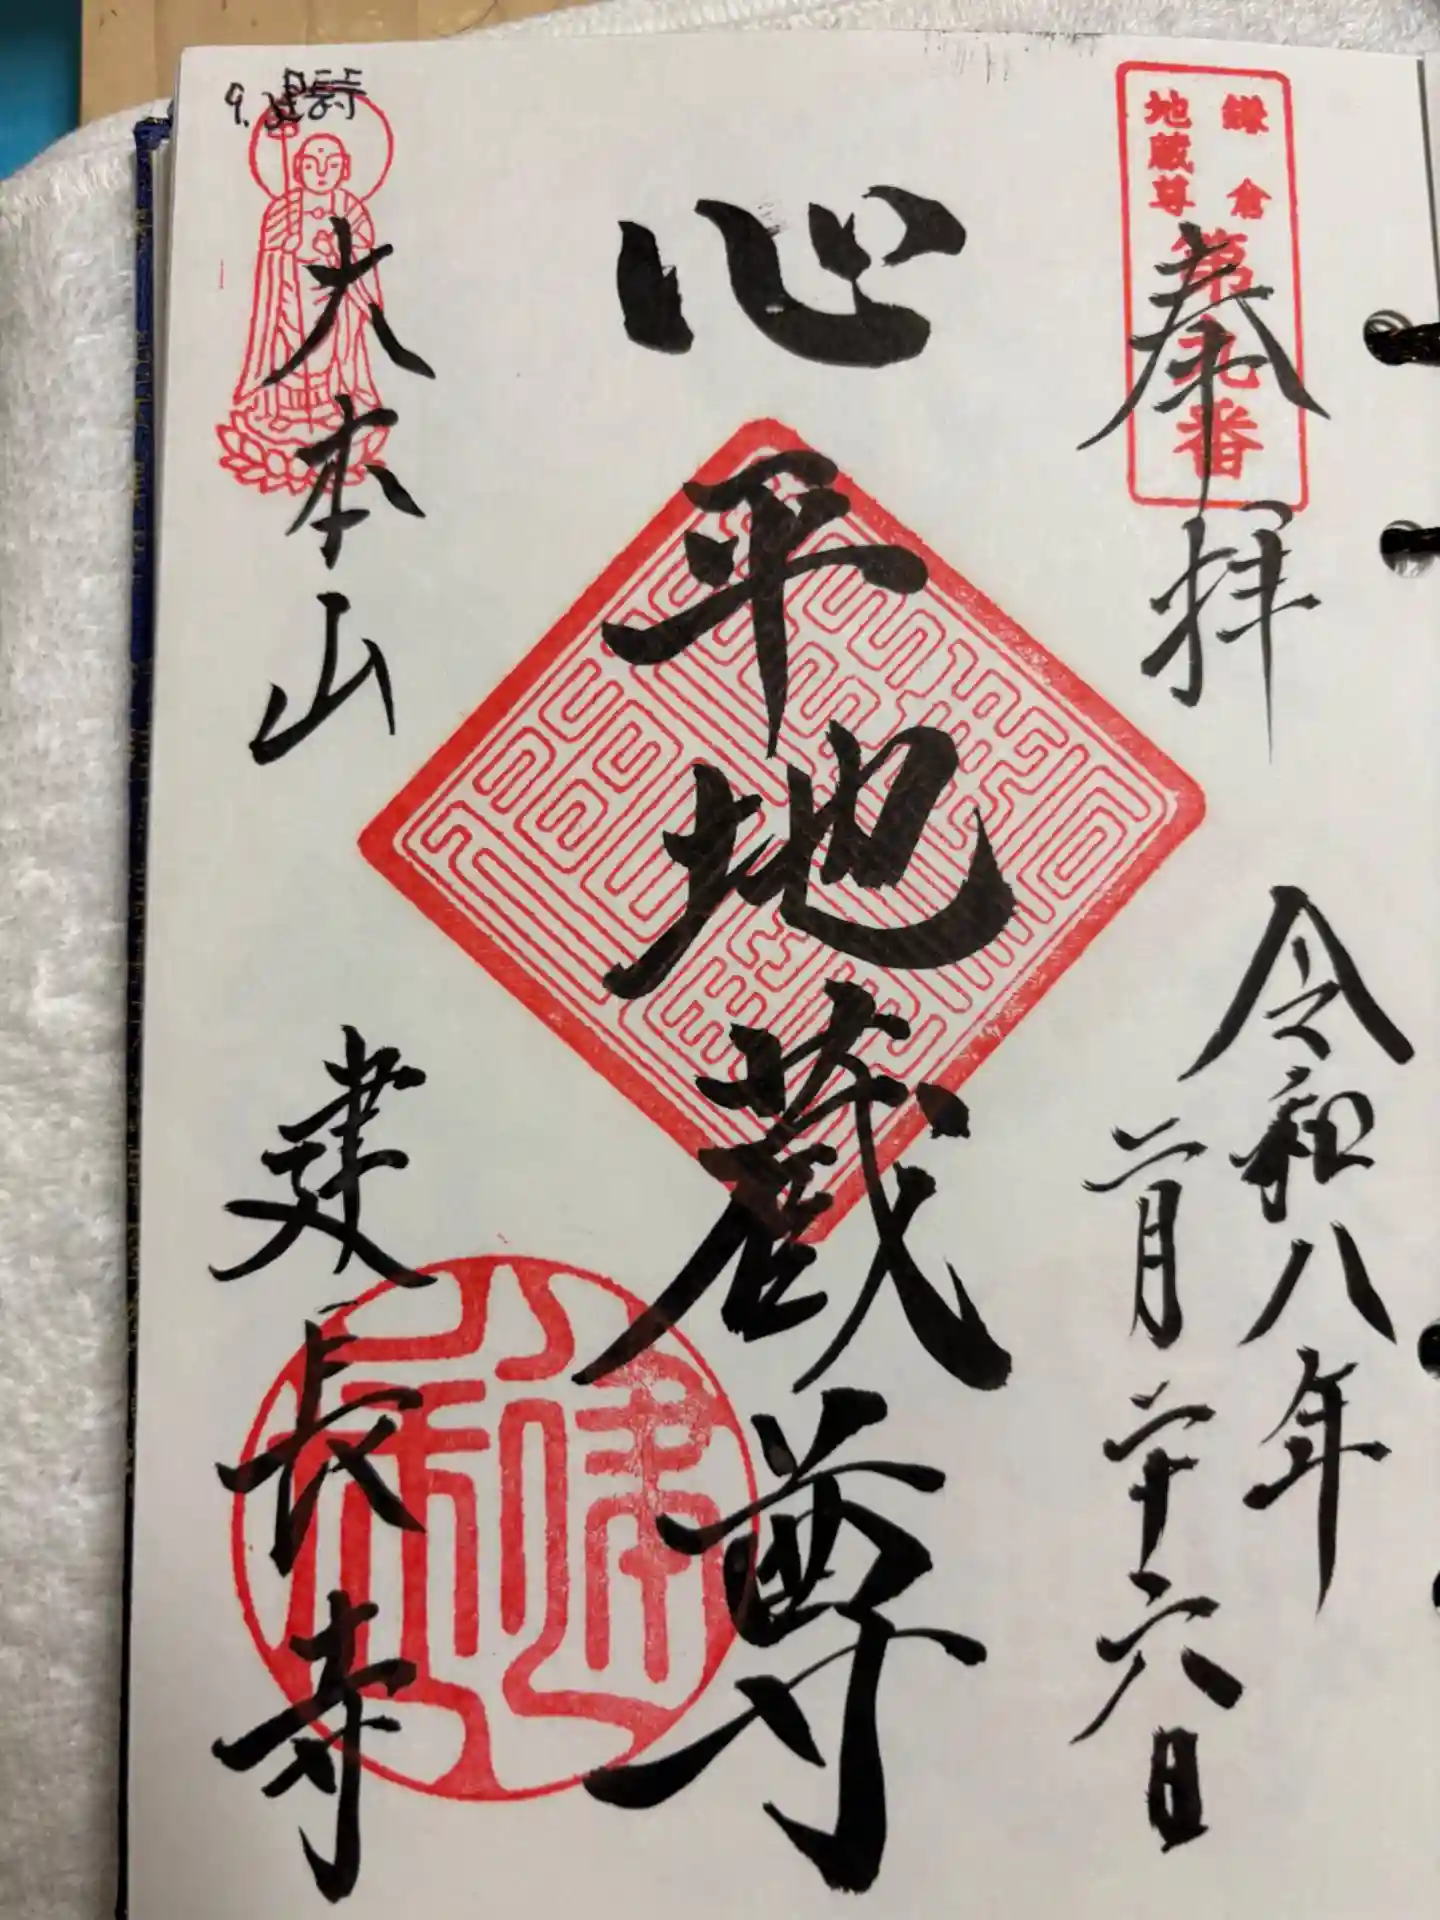 鎌倉
地蔵尊
第九番
奉拝
令和八年
二月二十六日
心平地蔵尊
大本山
建長寺
9.